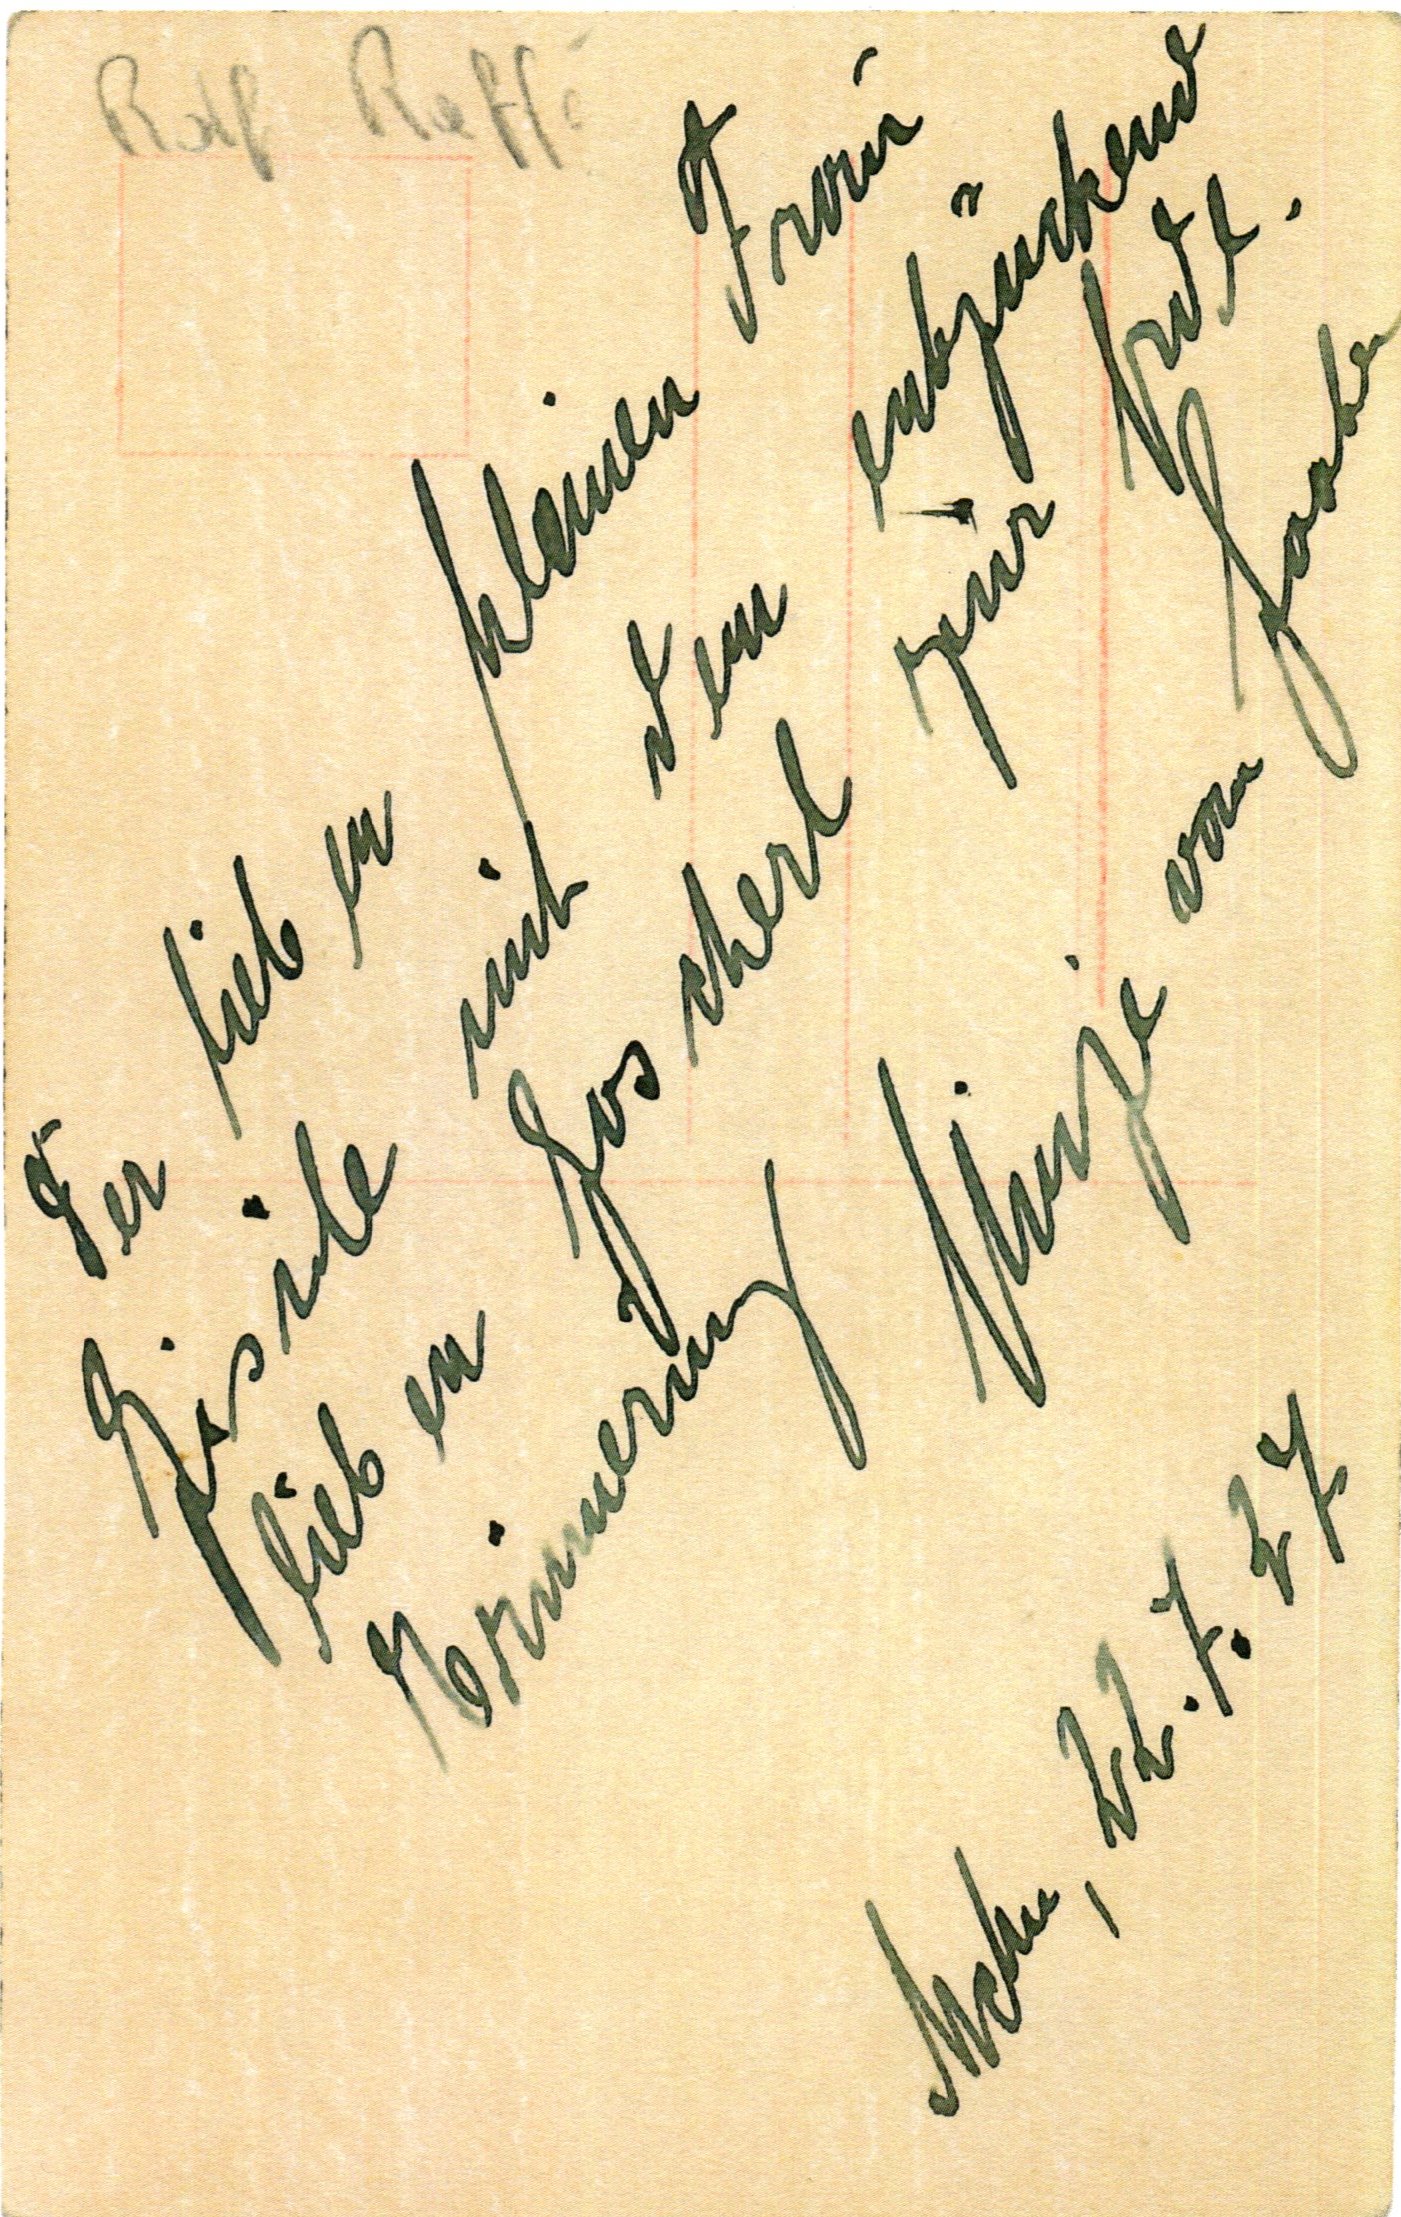 Rolf Raffé
Der lieben kleinen Frau
mit dem entzückend
lieben Goscherl zur frdl.
Erinnerung von
Mchn, 22.7.27